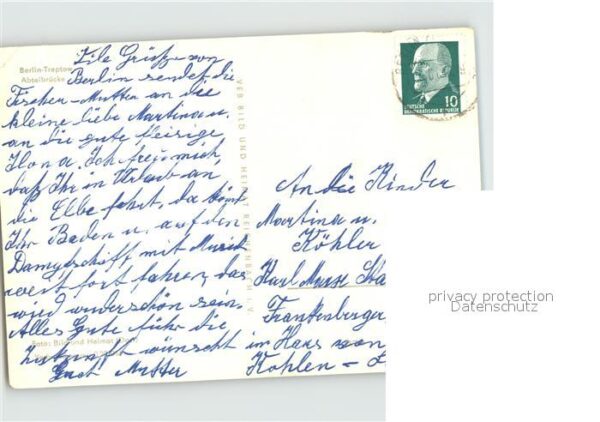 Berlin-Treptow
Abteibrücke
Viele Grüße von
Berlin sendet die
Fischer-Mutter an die
kleine liebe Martina u.
an die gute fleißige
Ilona. Ich freu mich,
daß Ihr in Urlaub an
die Elbe fahrt, da könnt
Ihr Baden u. auf den
Dampfschiff mit Musik
weit fort fahren, das
wird wunderschön sein.
Alles Gute führ die
Zukunft wünscht
Mutter
Foto: Bild und Heimat
VEB BILD UND HEIMAT REICHENBACH I. V.
DEUTSCHE
DEMOKRATISCHE REPUBLIK
10
An die Kinder
Martina u.
Köhler
Karl Marx Sta
Frankenberger
im Haus von
Kohlen -
privacy protection
Datenschutz